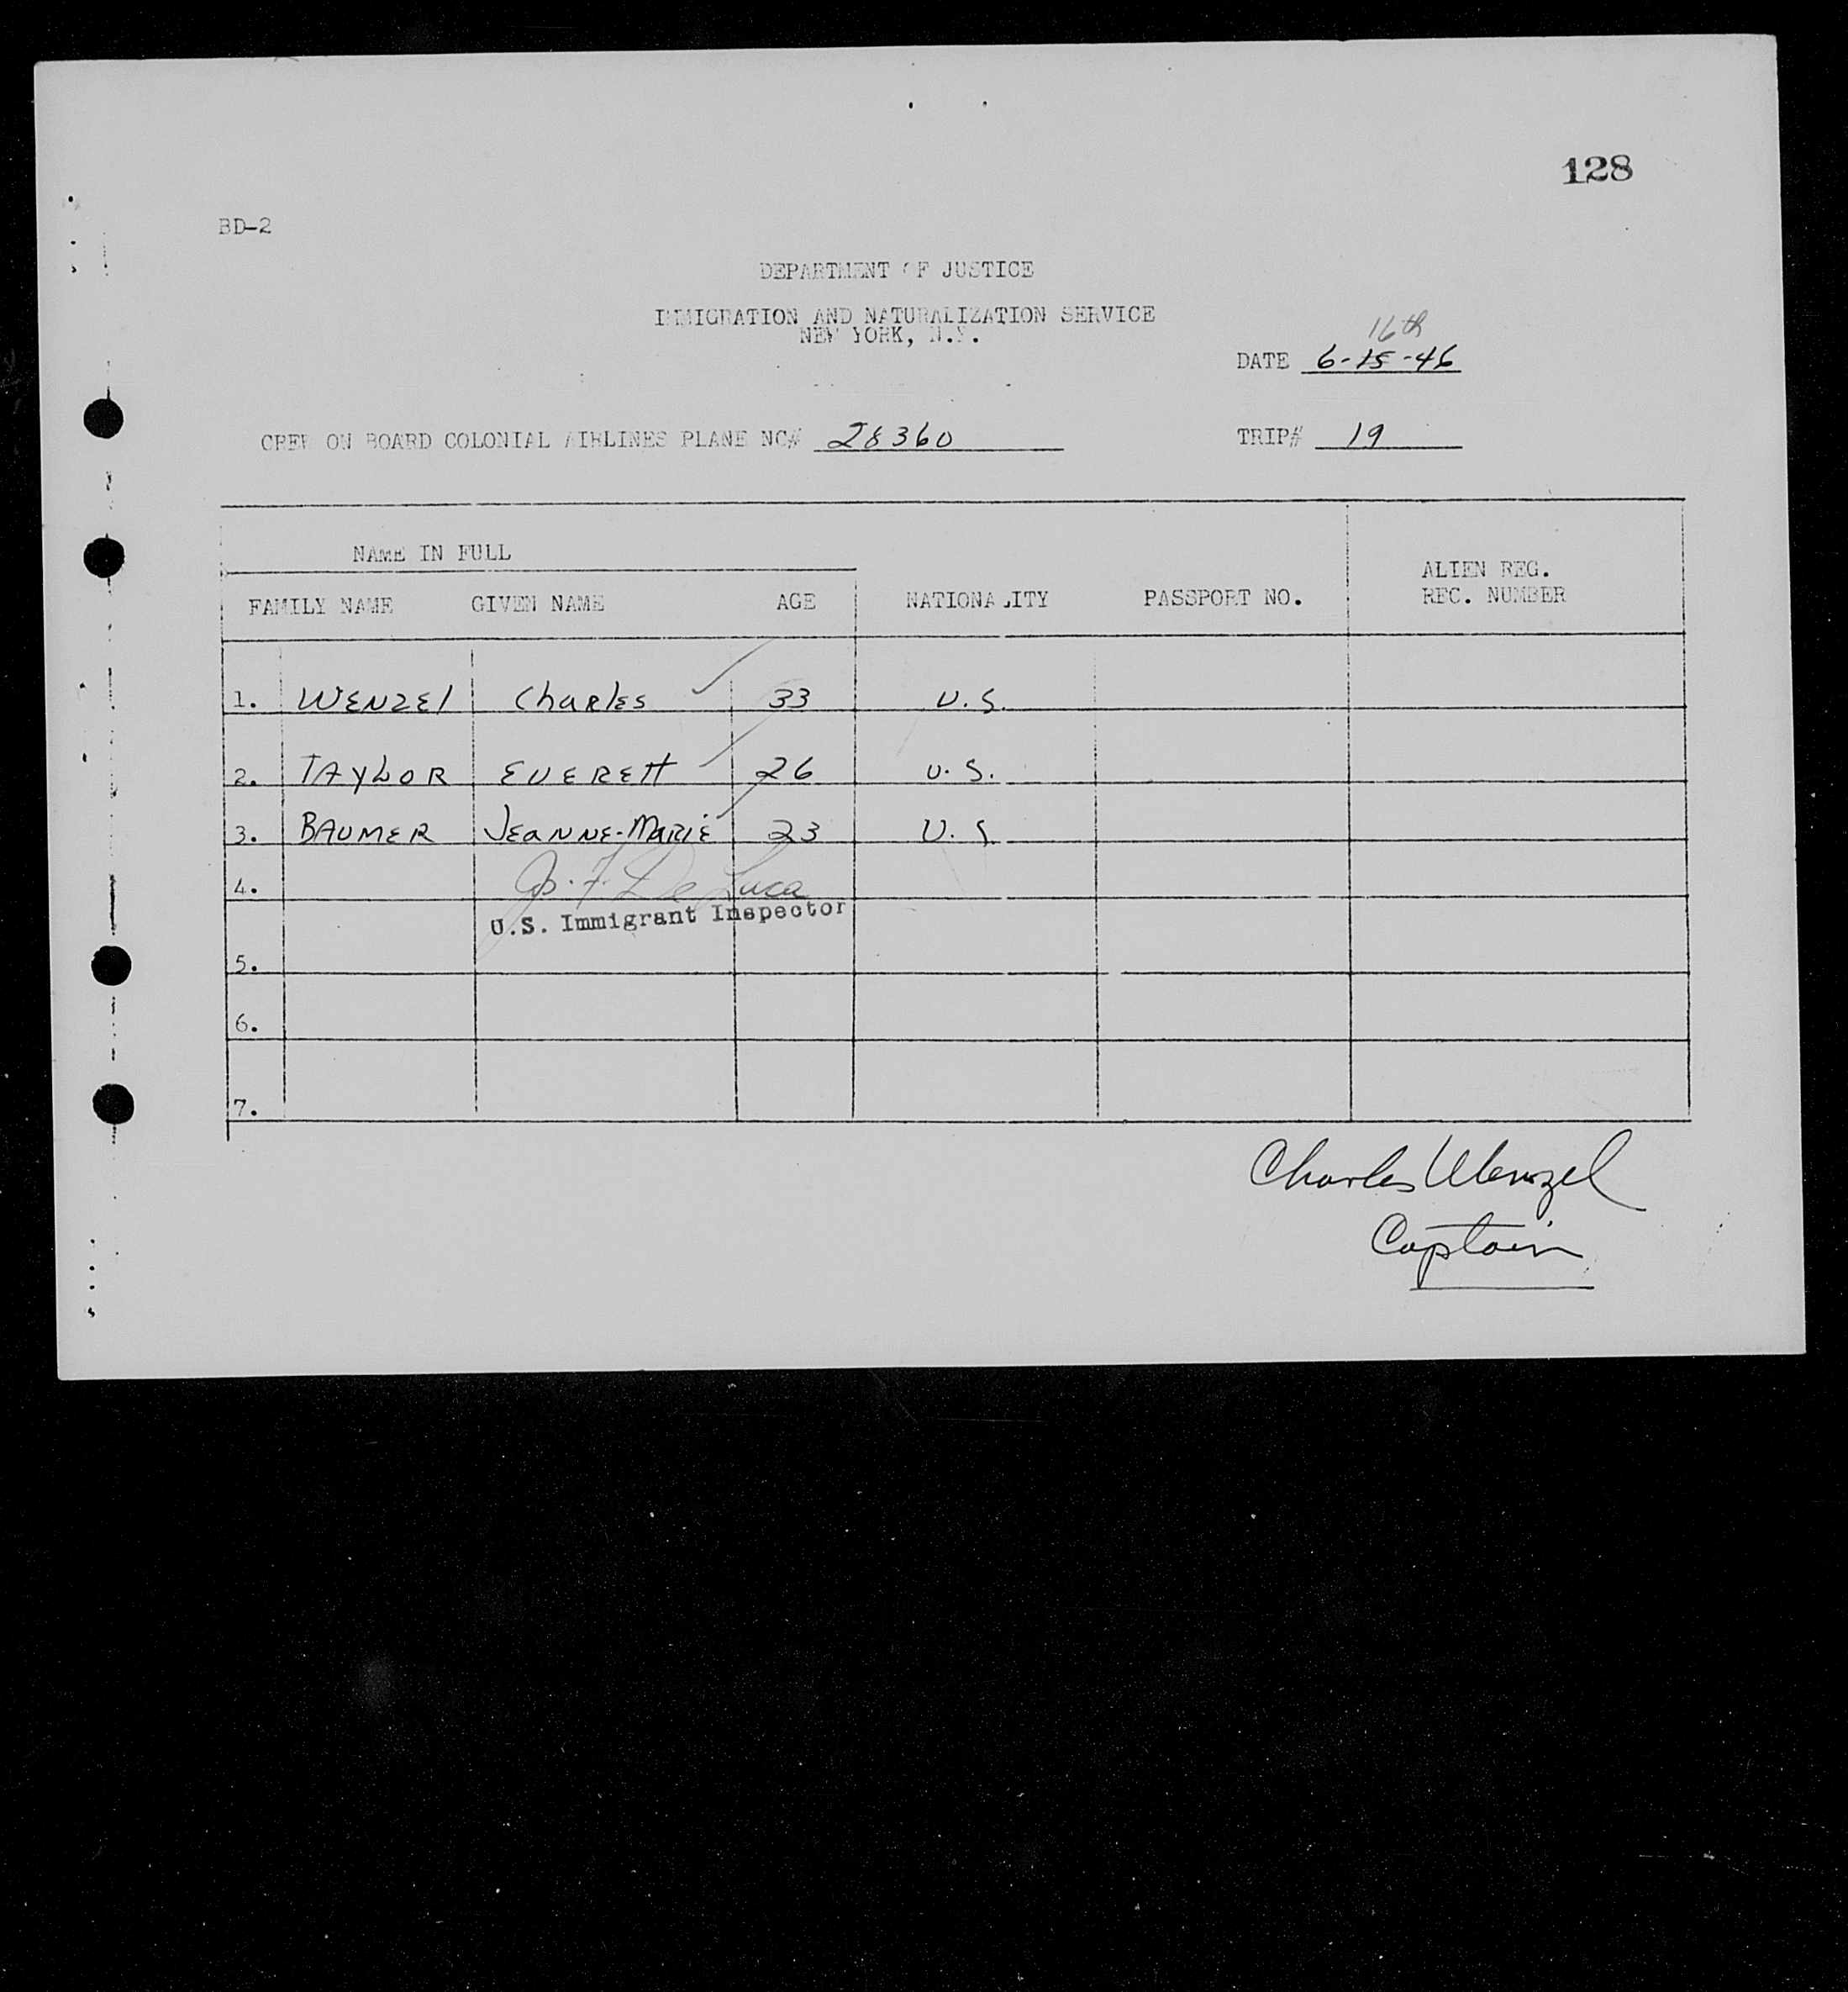 128
BD-2
DEPARTMENT OF JUSTICE
IMMIGRATION AND NATURALIZATION SERVICE
NEW YORK, N.Y.
16th
DATE 6-15-46
CREW ON BOARD COLONIAL AIRLINES PLANE NC# 28360 TRIP# 19
NAME IN FULL
FAMILY NAME GIVEN NAME AGE NATIONALITY PASSPORT NO. ALIEN REG. REC. NUMBER
1. WENZEl ChaRlEs 33 U.S.
2. TAYLOR EVERETT 26 U.S.
3. BAUMER JEANNE-MARIE 23 U.S.
4. De Luca
U.S. Immigrant Inspector
5.
6.
7.
Charles Wenzel
Captain